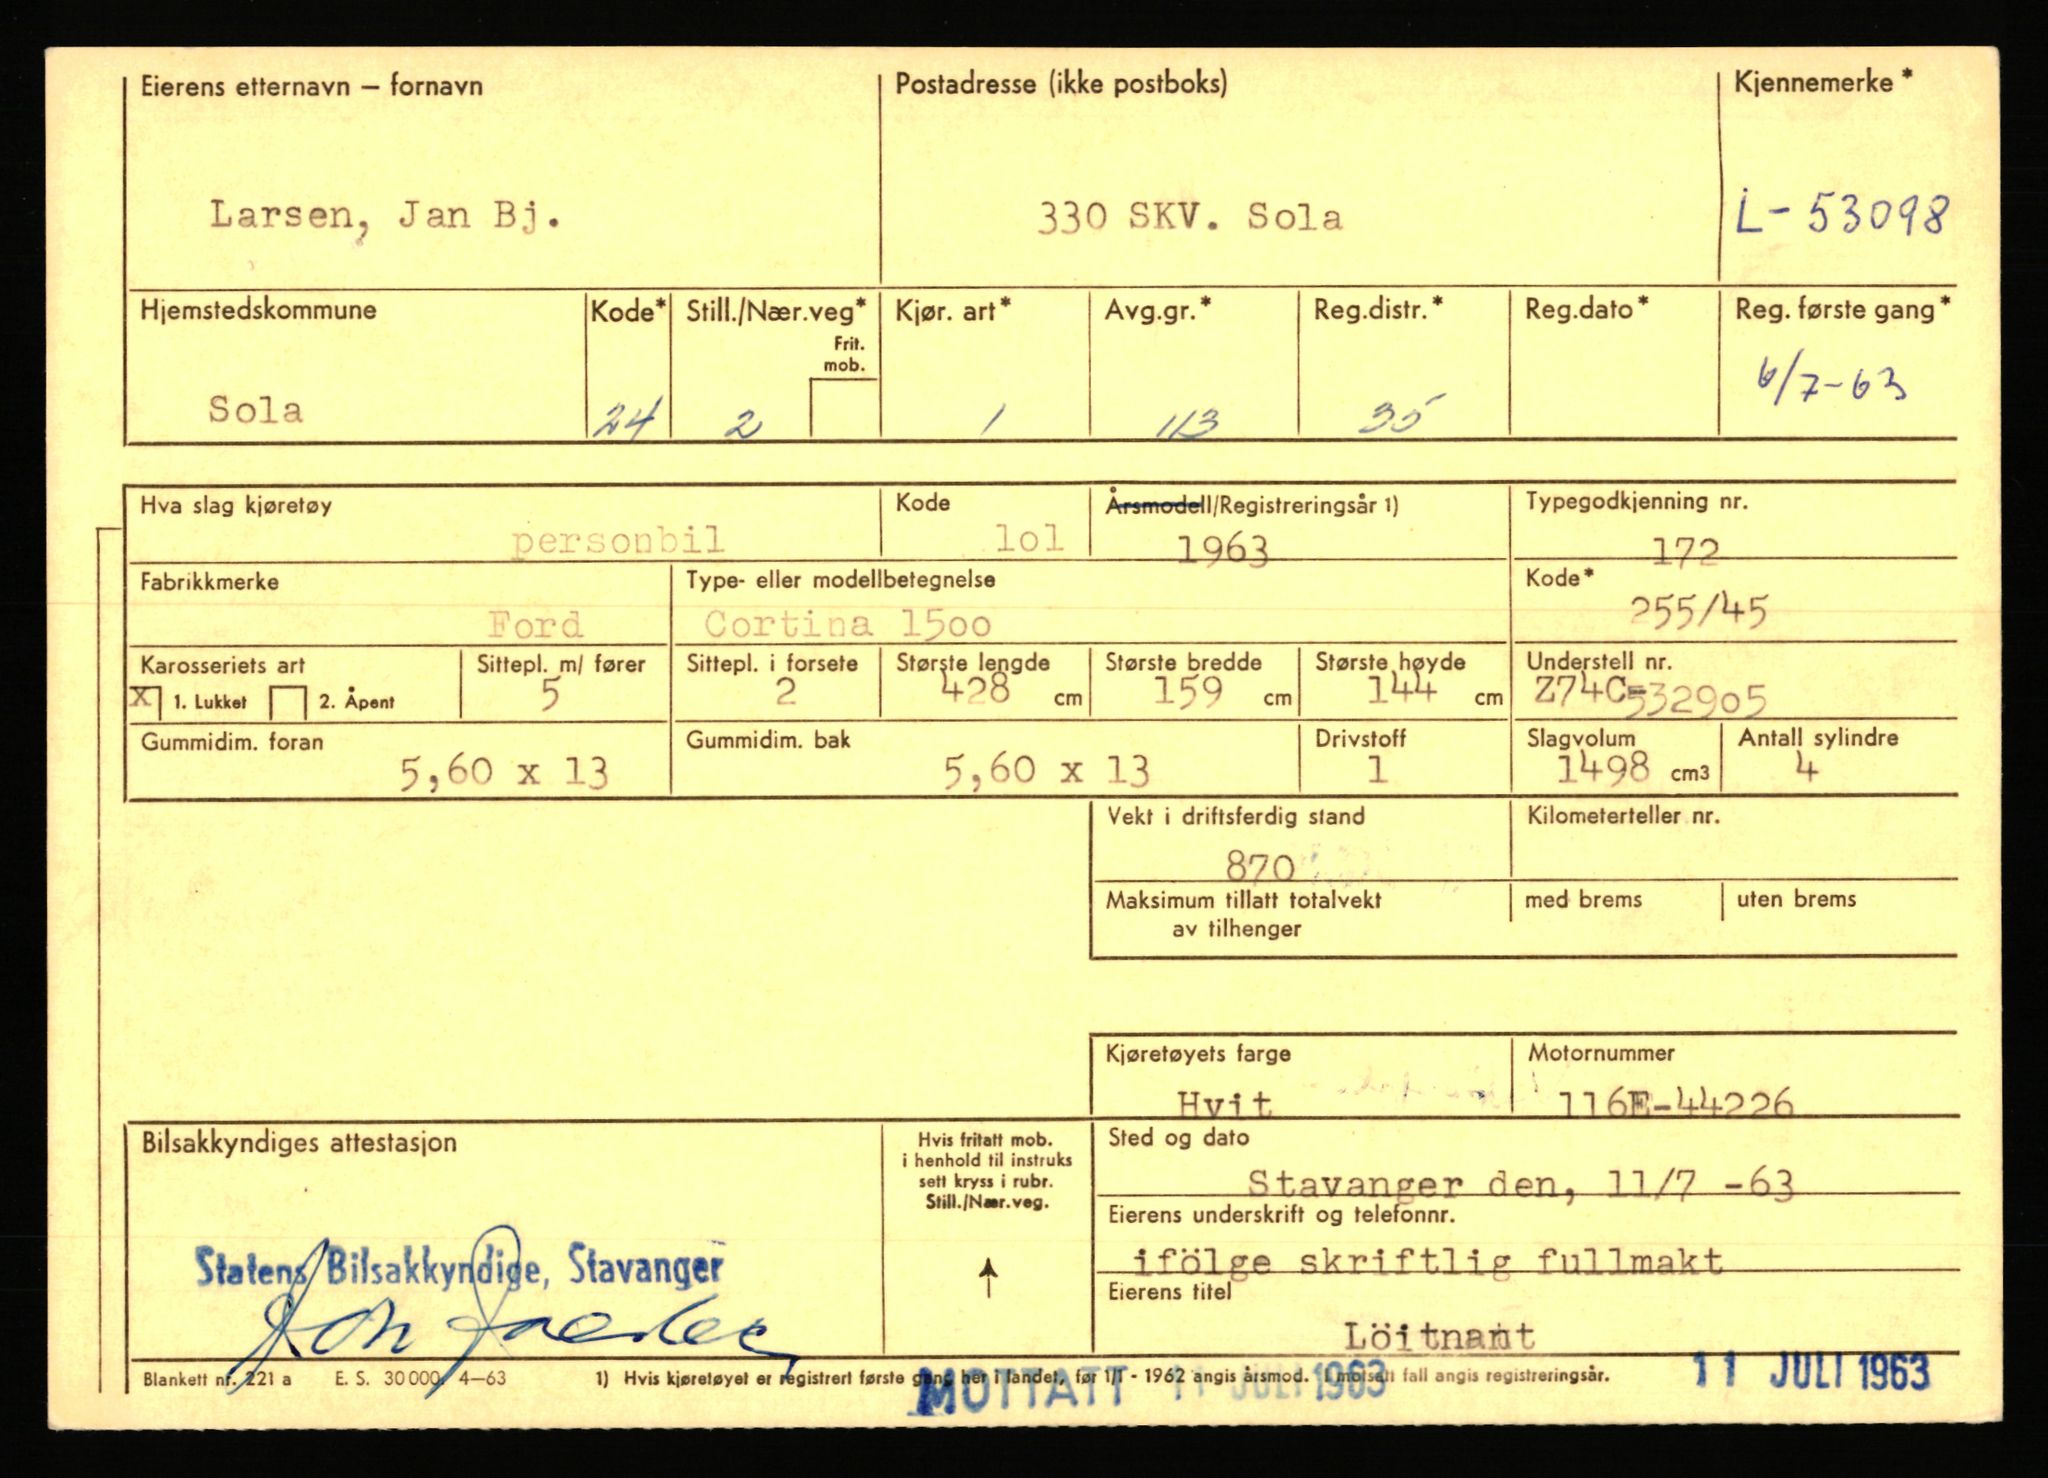 Eierens etternavn – fornavn Postadresse (ikke postboks) Kjennemerke*
Larsen, Jan Bj. 330 SKV. Sola L-53098
Hjemstedskommune Kode* Still./Nær.veg* Kjør. art* Avg.gr.* Reg.distr.* Reg.dato* Reg. første gang*
Frit.
mob.
Sola 24 2 1 113 35 6/7-63
Hva slag kjøretøy Kode Årsmodell/Registreringsår 1) Typegodkjenning nr.
personbil lol 1963 172
Fabrikkmerke Type- eller modellbetegnelse Kode*
Ford Cortina 15oo 255/45
Karosseriets art Sittepl. m/ fører Sittepl. i forsete Største lengde Største bredde Største høyde Understell nr.
X 1. Lukket 2. Åpent 5 2 428 cm 159 cm 144 cm Z74C-532905
Gummidim. foran Gummidim. bak Drivstoff Slagvolum Antall sylindre
5,60 x 13 5,60 x 13 1 1498 cm3 4
Vekt i driftsferdig stand Kilometerteller nr.
870
Maksimum tillatt totalvekt med brems uten brems
av tilhenger
Kjøretøyets farge Motornummer
Hvit 116E-44226
Bilsakkyndiges attestasjon Hvis fritatt mob. Sted og dato
i henhold til instruks
sett kryss i rubr.
Still./Nær.veg.
Stavanger den, 11/7 -63
Eierens underskrift og telefonnr.
Statens Bilsakkyndige, Stavanger ifölge skriftlig fullmakt
Eierens titel
Löitnant
Blankett nr. 221 a E. S. 30 000. 4–63 1) Hvis kjøretøyet er registrert første gang her i landet, før 1/1 - 1962 angis årsmod. I motsatt fall angis registreringsår.
MOTTATT 11 JULI 1963 11 JULI 1963